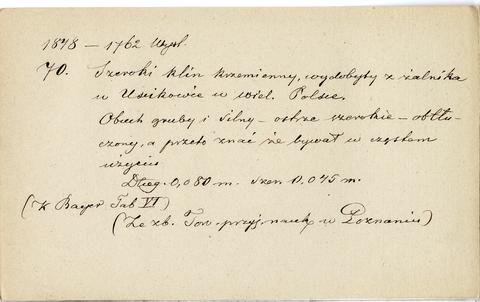 1878 – 1762 Wyst.
70. Szeroki klin krzemienny, wydobyty z żalnika
w Uścikowie w wiel. Polsce.
Obuch gruby i silny – ostrze szerokie – obtłu-
czony, a przeto znać że bywał w częstem
użyciu
Dług. 0,080 m. Szer. 0,045 m.
(K Bayer Tab VI)
(Ze zb. Tow. przyj. nauk w Poznaniu)